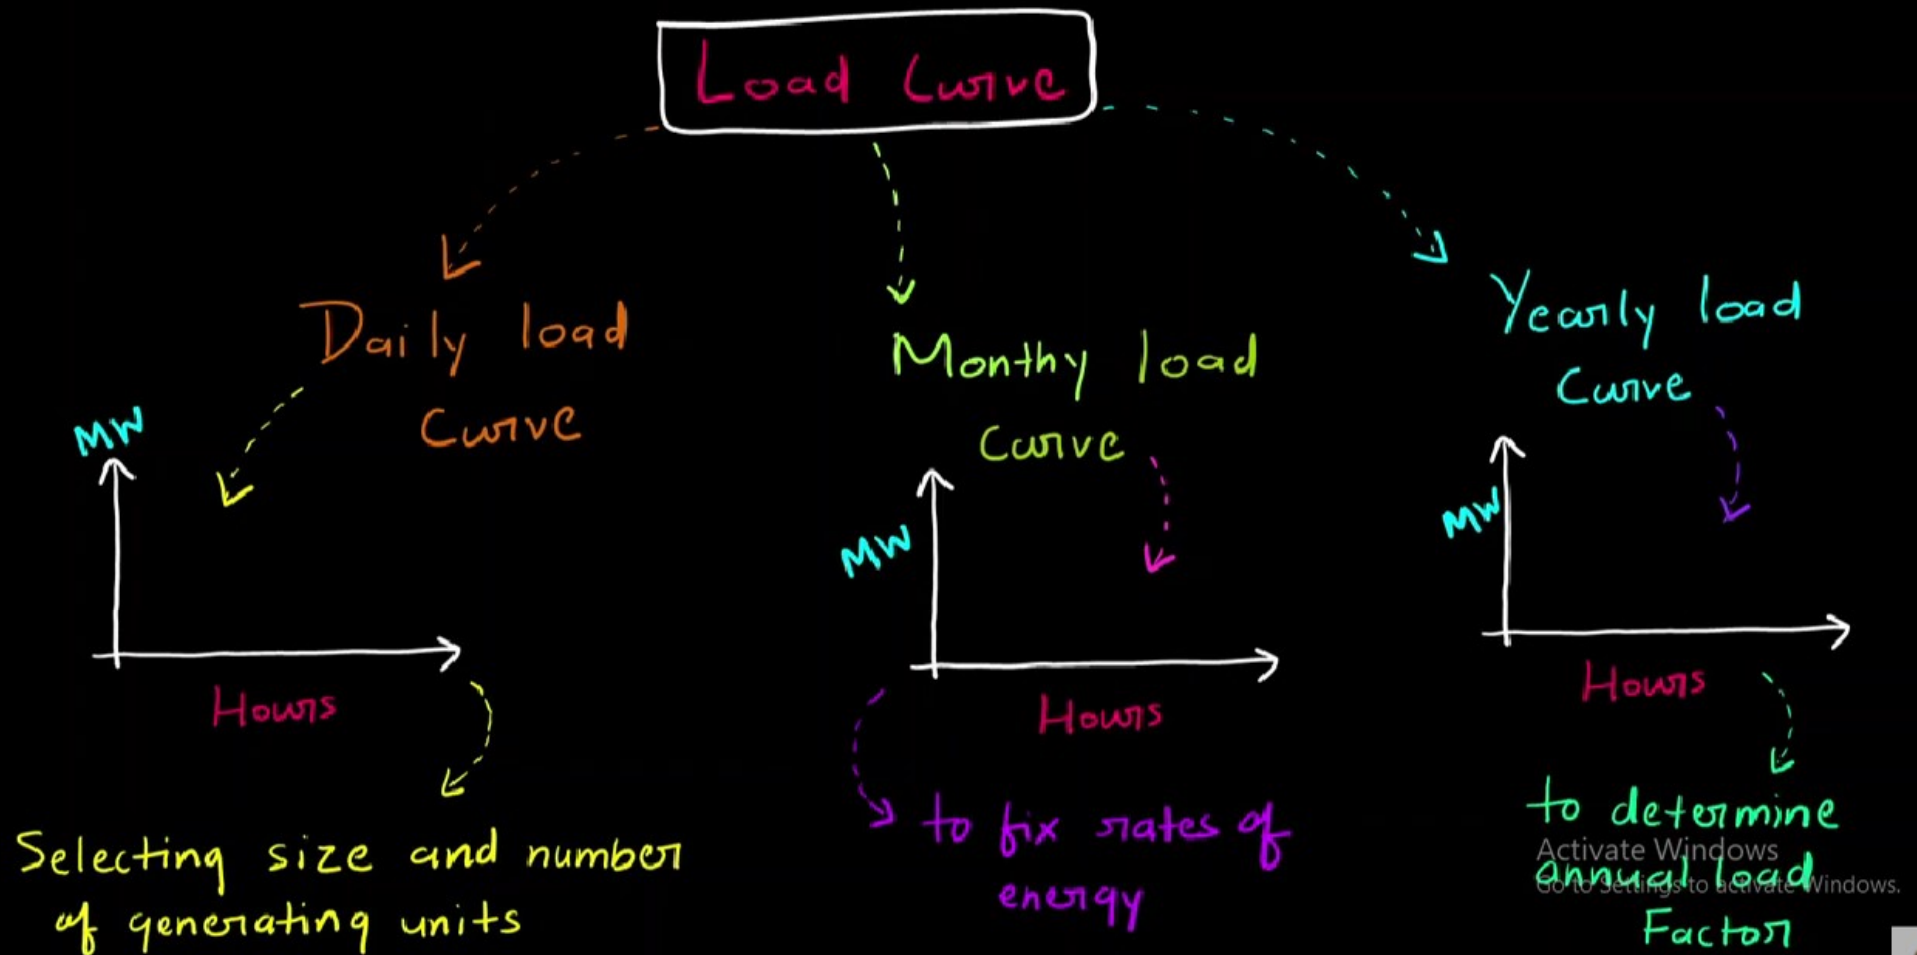 Load Curve
Daily load
Curve
MW
Hours
Selecting size and number
of generating units
Monthy load
Curve
MW
Hours
to fix rates of
energy
Yearly load
Curve
MW
Hours
to determine
annual load
Factor
Activate Windows
Go to Settings to activate Windows.